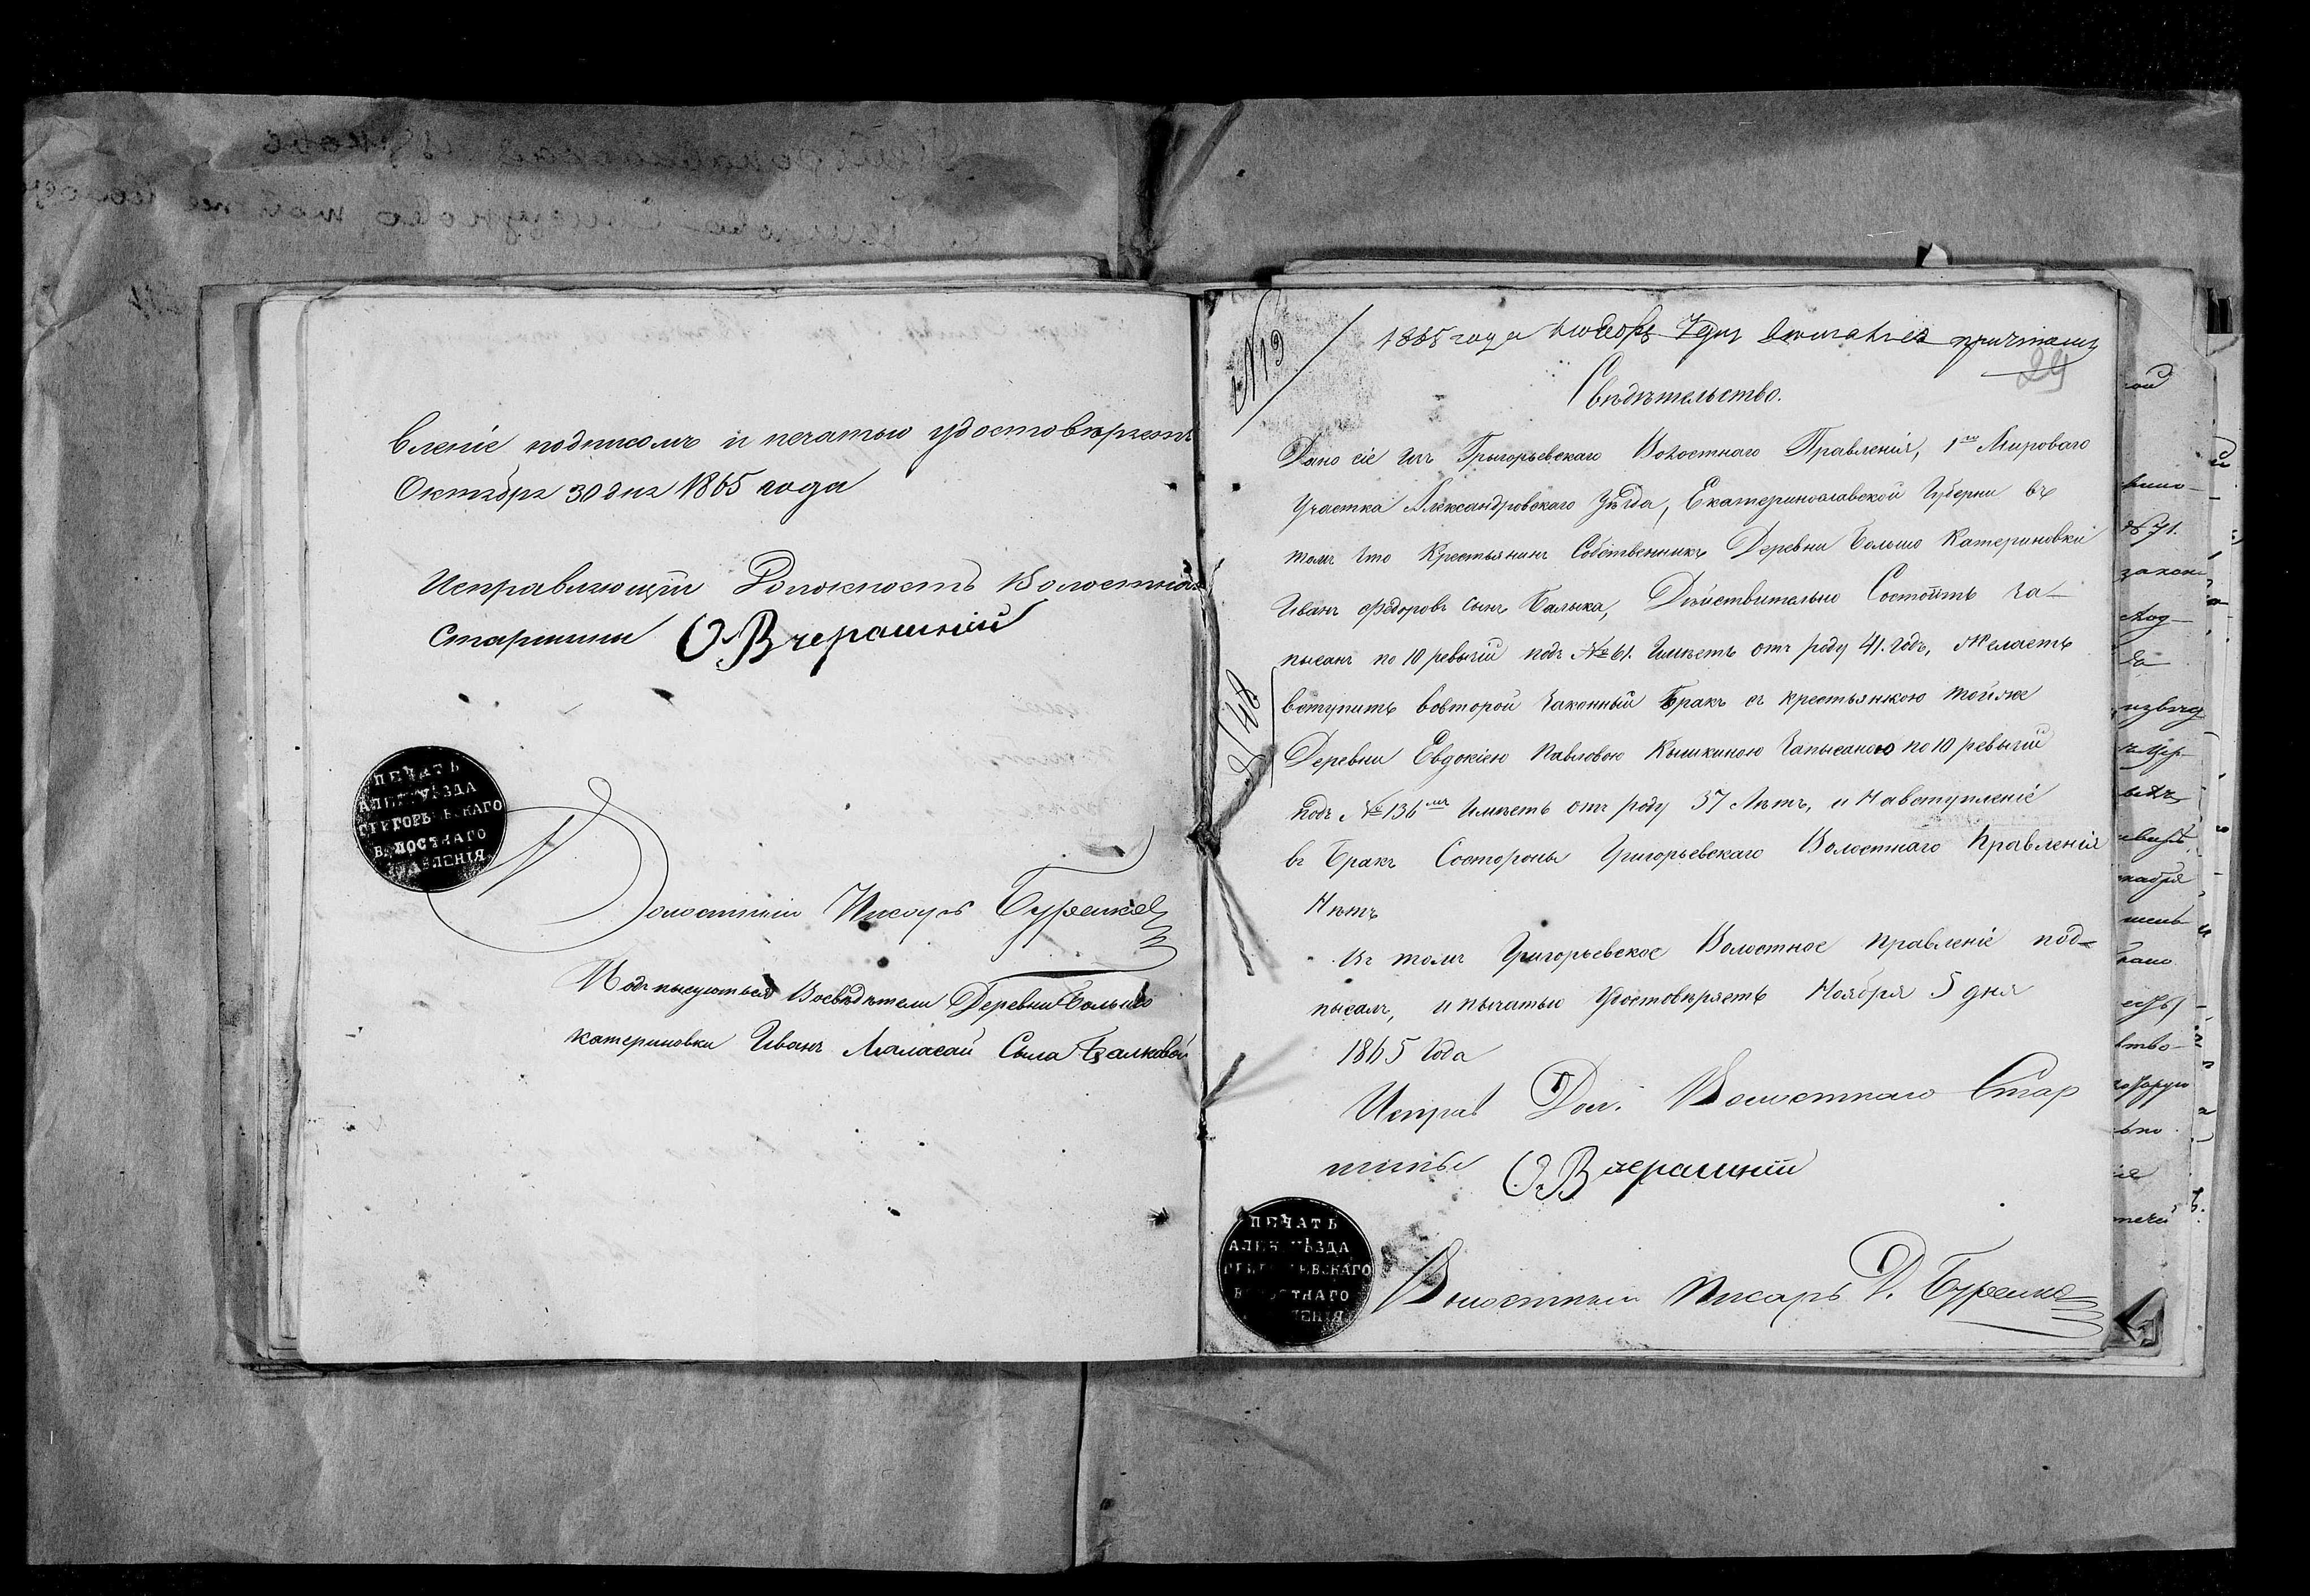 вленіе подписомъ и печатью удостовѣряетъ
Октября 30 дня 1865 года
Исправляющій Должность Волостнаго
Старшины О. Вчерашній
ПЕЧАТЬ
АЛЕК. УѢЗДА
ГРИГОРЬЕВСКАГО
ВОЛОСТНАГО
ПРАВЛЕНІЯ
Волостній Писарь Буренко
Подъписуються Восвѣдѣтели Деревни Большо
катериновки Иванъ
№ 13
1865 года ноября 7 дня
29
Свѣдѣтельство.
Дано сіе изъ Грыгорьевскаго Волостнаго Правленія, 1го Мироваго
Участка Александровскаго Уѣзда, Екатеринославской Губерни въ
томъ что Крестьянинъ Собственникъ Деревни Большо Катериновки
Иванъ Федоровъ сынъ Балыка, Дѣйствительно Состоитъ за-
писанъ по 10 ревызіи подъ № 61. Имѣетъ отъ роду 41. годъ, Желаетъ
вступить вовторой законный Бракъ съ крестьянкою тойже
Деревни Евдокіею Павловою Кышкиною запысаною по 10 ревызіи
подъ № 136мъ Имѣетъ отъ роду 37 Лѣтъ, и Навступленіе
въ Бракъ Состороны Григорьевскаго Волостнаго Правленія
Нѣтъ
Въ томъ Григорьевское Волостное Правленіе под-
писомъ, и пычатью Удостовѣряетъ Ноября 5 дня
1865 Года
Исправ Дол. Волостнаго Стар
шины О. Вчерашній
ПЕЧАТЬ
АЛЕК. УѢЗДА
ГРИГОРЬЕВСКАГО
ВОЛОСТНАГО
ПРАВЛЕНІЯ
Волостный Писарь Д. Буренко